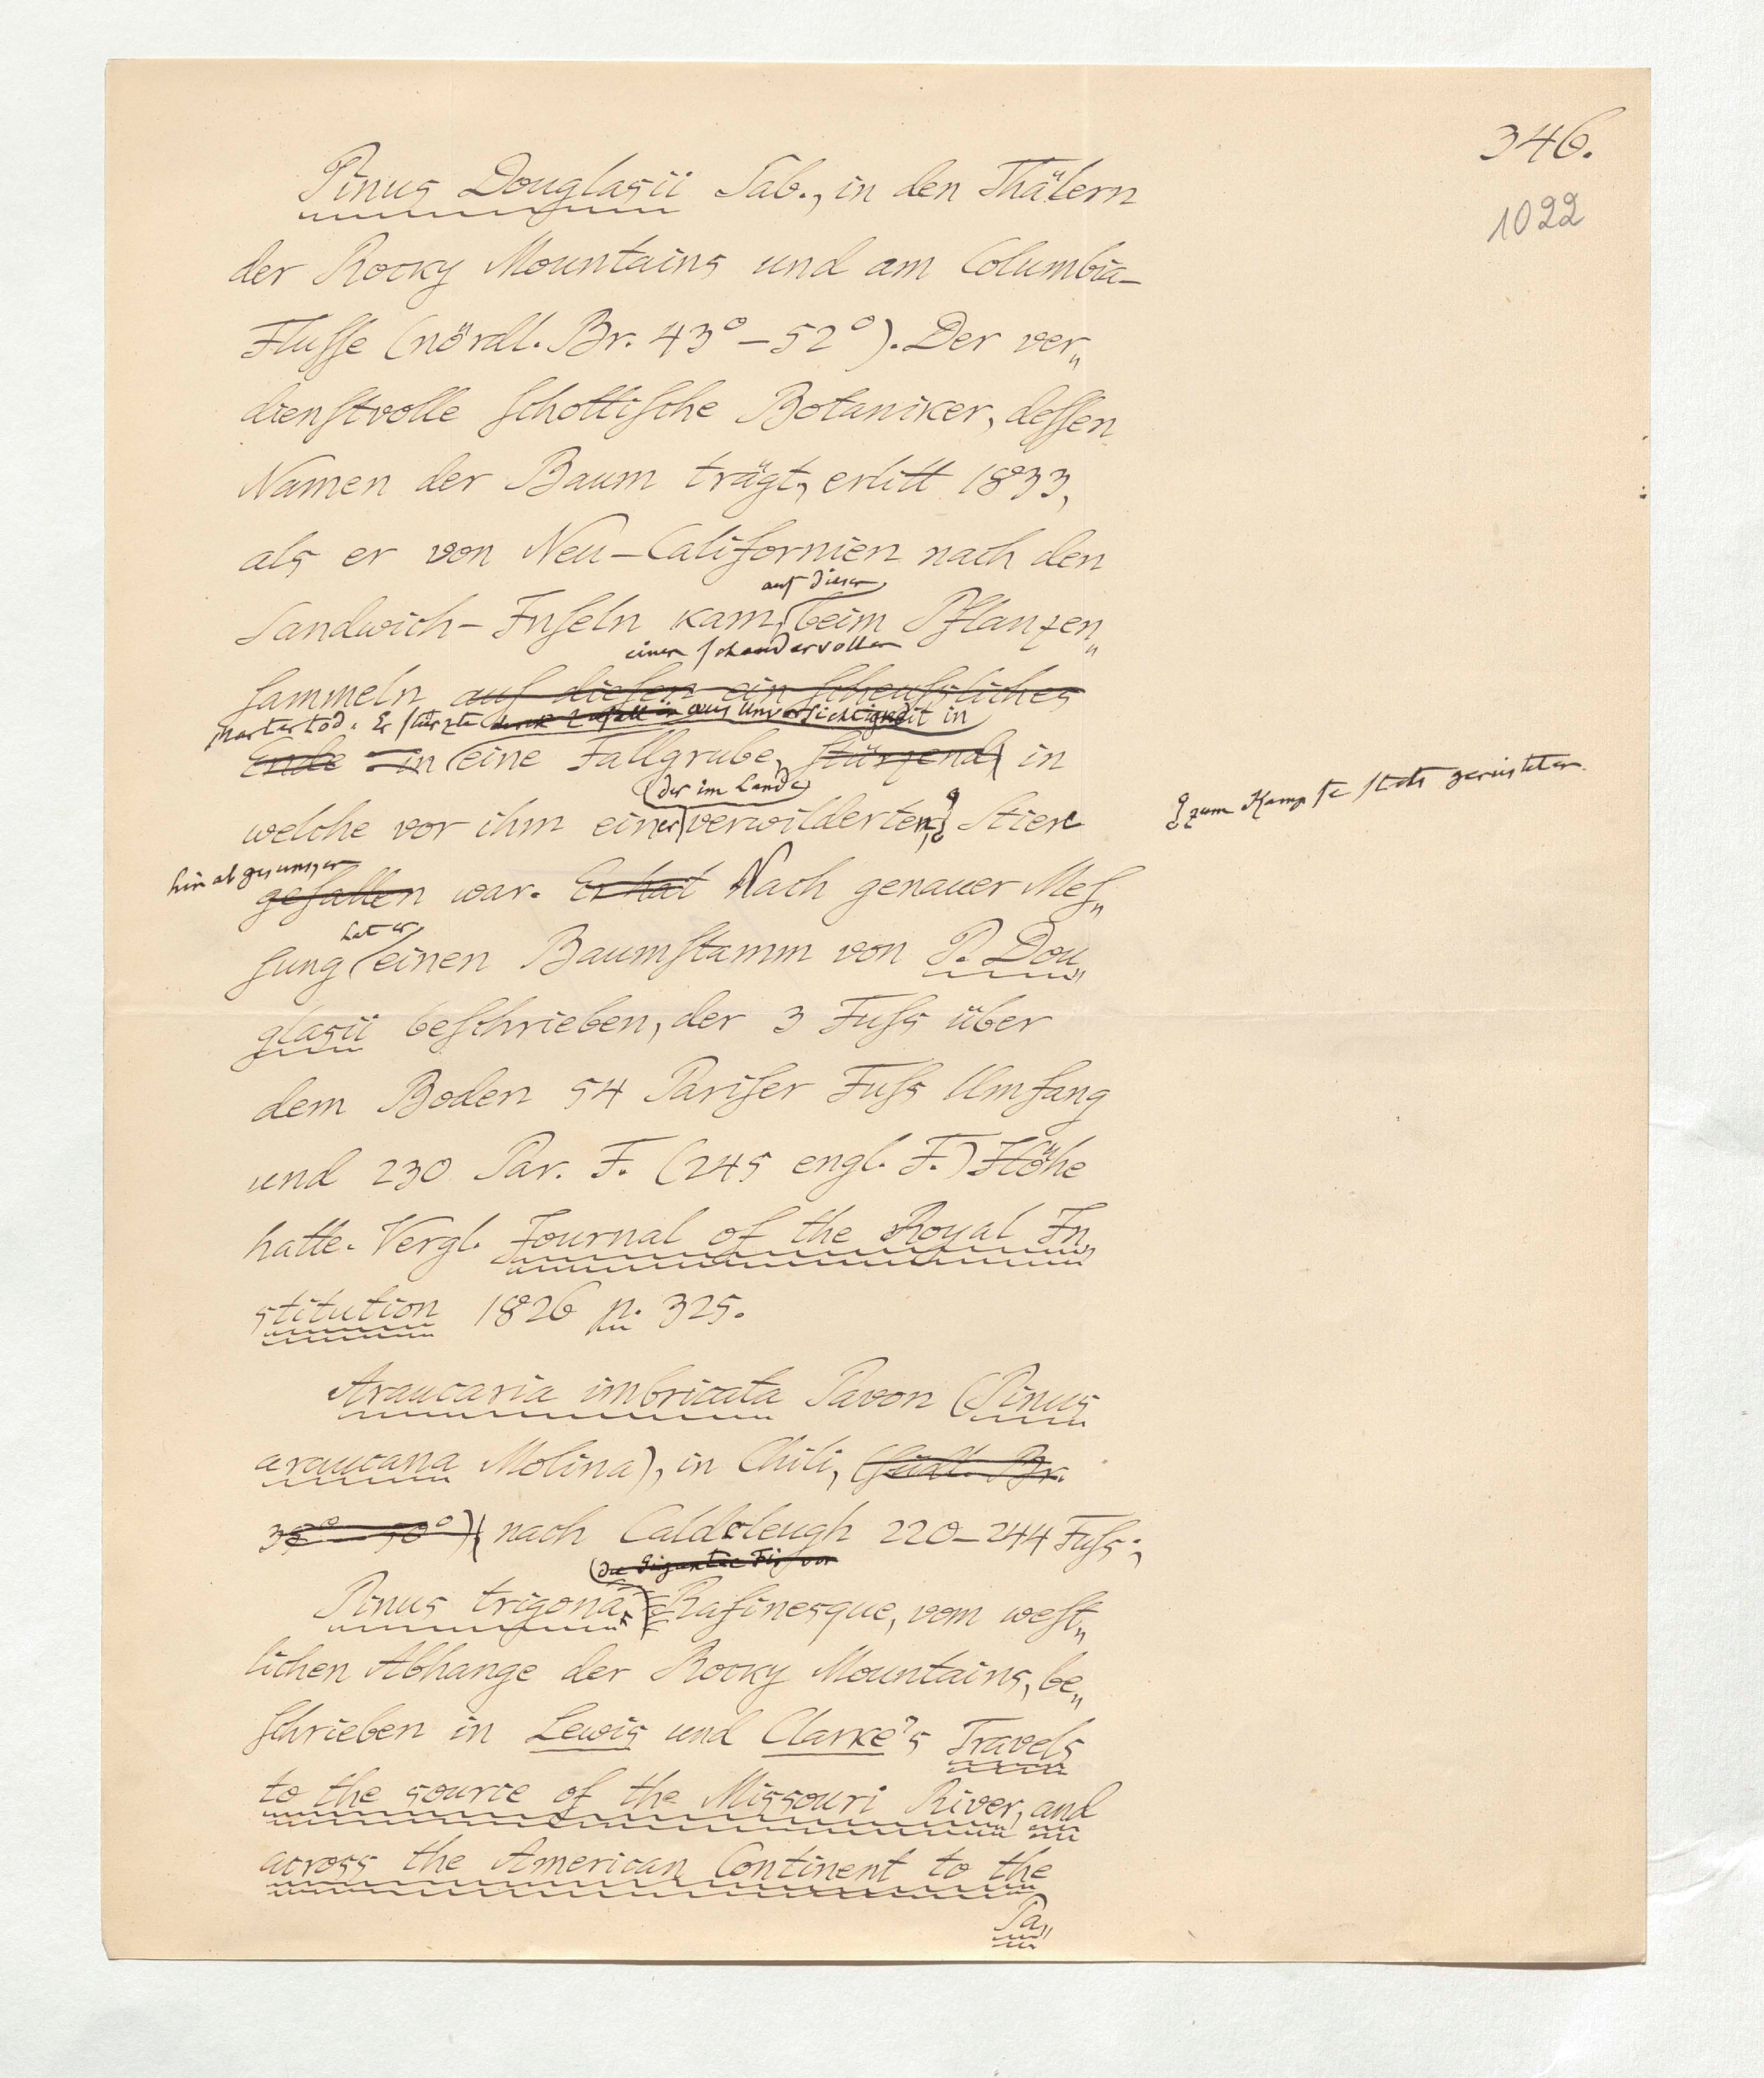 346.
1022
Pinus Douglasii Sab., in den Thälern
der Rocky Mountains und am Columbia-
Flusse (nördl. Br. 43° – 52°). Der ver„
dienstvolle schottische Botaniker, dessen
Namen der Baum trägt, erlitt 1833,
als er von Neu-Californien nach den
auf diesen
Sandwich-Inseln kam, beim Pflanzen„
einen schaudervollen
sammeln auf diesen ein scheussliches
Martertod. Er stürzte durch Zufall in aus Unvorsichtigkeit in
Ende – in eine Fallgrube, stürzend in
der im Lande
welche vor ihm einer verwilderten Stiere
zum Kampfe stets gerüsteten
hinabgesunken
gefallen war. Er hat Nach genauer Mes„
hat er
sung einen Baumstamm von P. Dou„
glasii beschrieben, der 3 Fuss über
dem Boden 54 Pariser Fuss Umfang
und 230 Par. F. (245 engl. F.) Höhe
hatte. Vergl. Journal of the Royal In„
stitution 1826 p. 325.
Araucaria imbricata Pavon (Pinus
araucana Molina), in Chili, (südl. Br.
35° – 50°) nach Caldcleugh 220–244 Fuss;
die Gigantic Fir von
Pinus trigona Rafinesque, vom west„
lichen Abhange der Rocky Mountains, be„
schrieben in Lewis und Clarke's Travels
to the source of the Missouri River, and
across the American Continent to the
Pa„